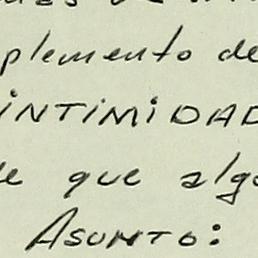 de
plemento de
INTIMIDAD
que alg
ASUNTO: